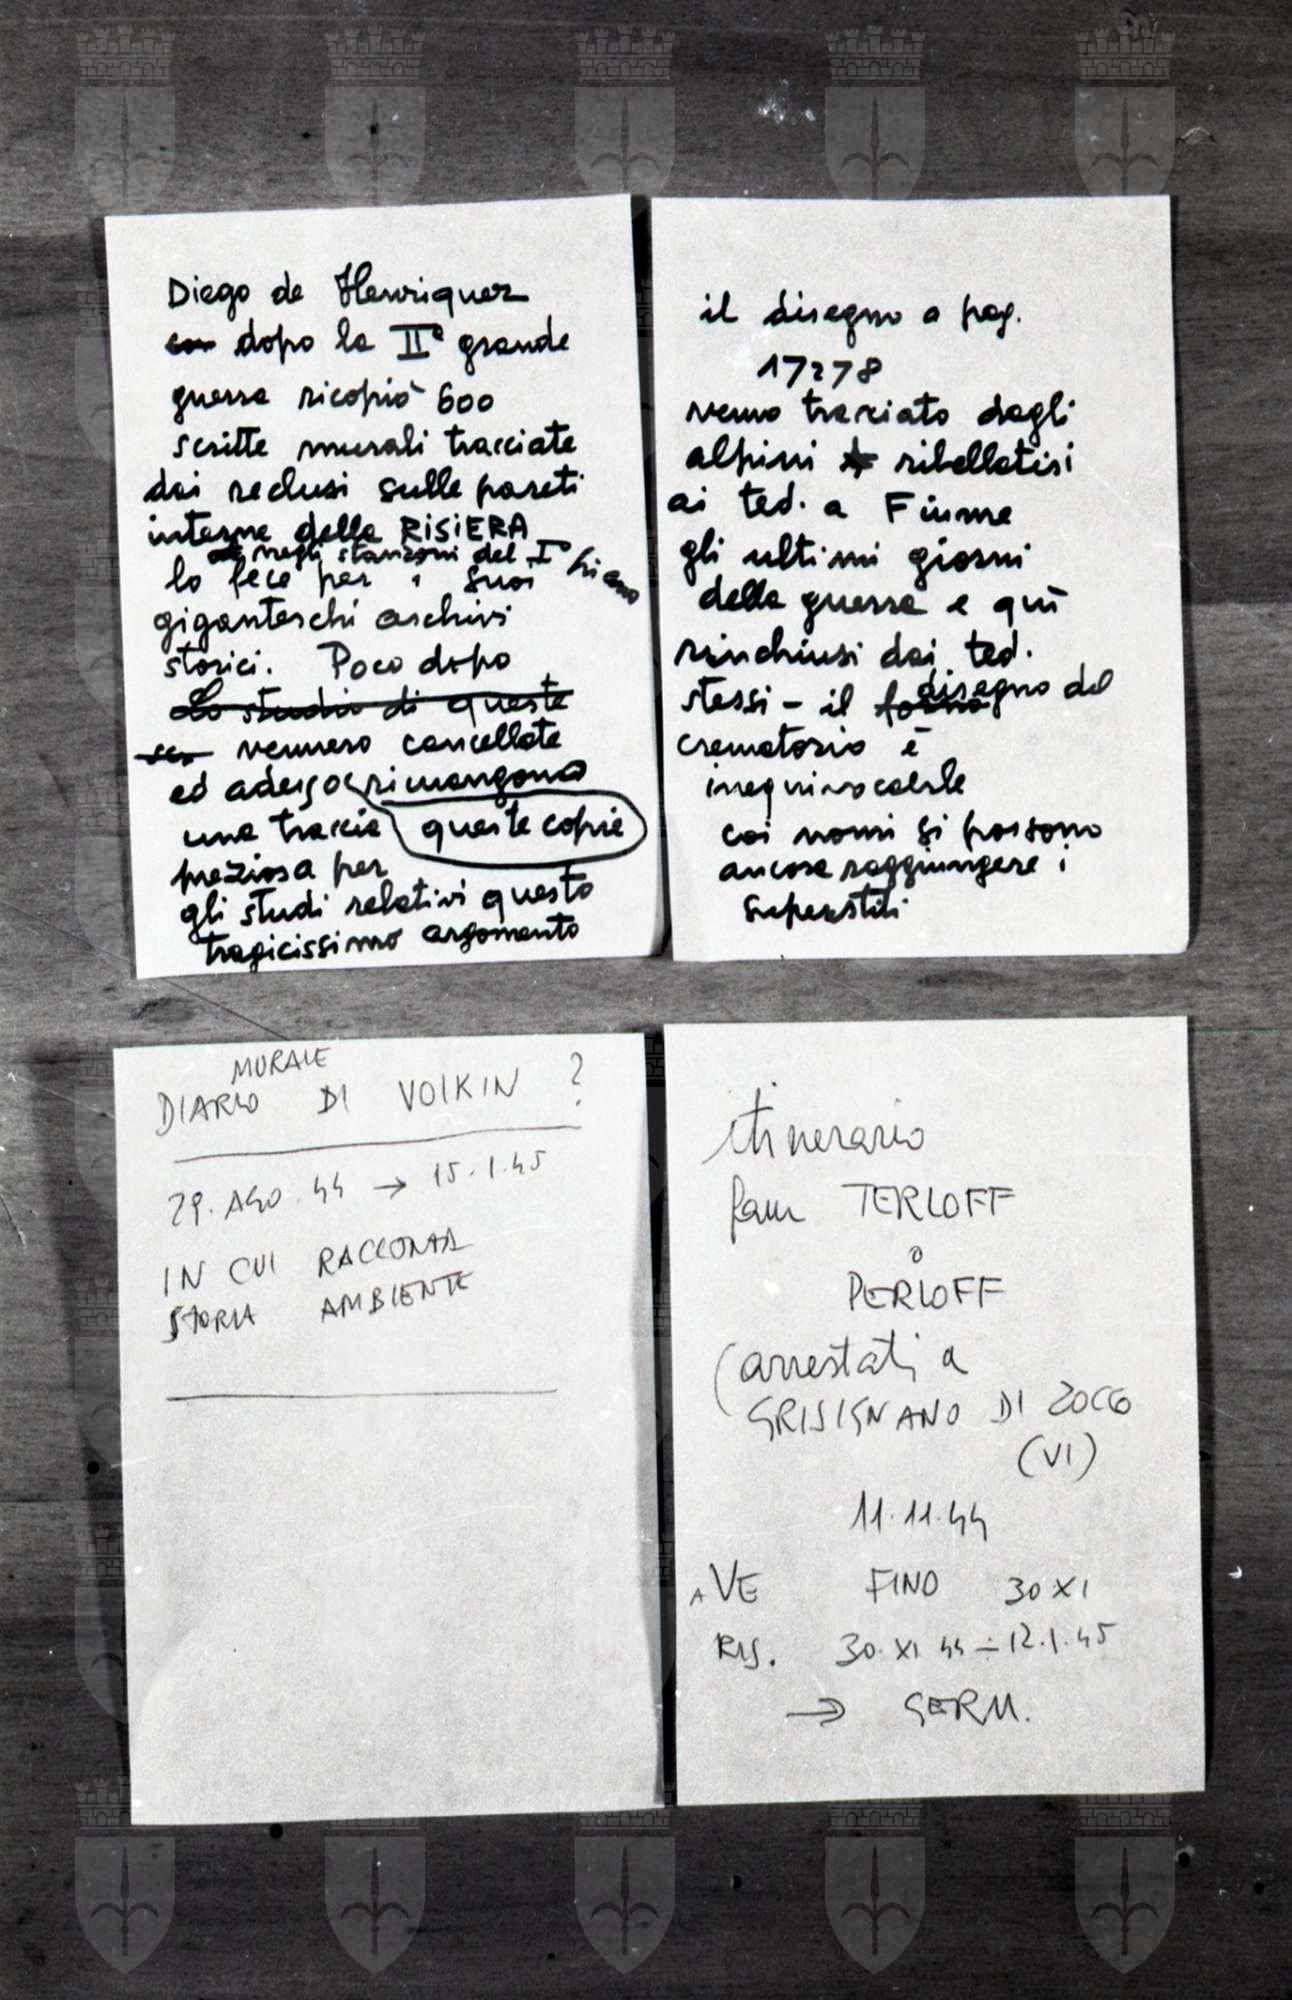 Diego de Henriquez
con dopo la IIª grande
guerra ricopiò 600
scritte murali tracciate
dai reclusi sulle pareti
interne della RISIERA
negli stanzoni del I° piano
lo fece per i suoi
giganteschi archivi
storici. Poco dopo
Lo studio di queste
vennero cancellate
ed adesso rimangono
una traccia queste copie
preziosa per
gli studi relativi questo
tragicissimo argomento
il disegno a pag.
17278
venne tracciato dagli
alpini ribellatisi
ai ted. a Fiume
gli ultimi giorni
della guerra e quì
rinchiusi dai ted.
stessi - il forno disegno del
crematorio è
inequivocabile
coi nomi si possono
ancora raggiungere i
superstiti
MURALE
DIARIO DI VOLKIN ?
29. AGO. 44 → 15.1.45
IN CUI RACCONTA
STORIA AMBIENTE
itinerario
fam TERLOFF
o
PERLOFF
(arrestati a
GRISIGNANO DI ZOCCO
(VI)
11.11.44
A VE FINO 30 XI
RIS. 30. XI 44 ÷ 12.1.45
→ GERM.